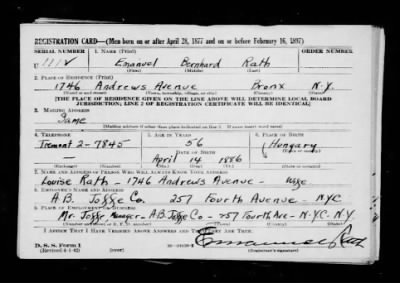 REGISTRATION CARD—(Men born on or after April 28, 1877 and on or before February 16, 1897)
SERIAL NUMBER 1. NAME (Print) ORDER NUMBER
U Emanuel Bernhard Rath
(First) (Middle) (Last)
2. PLACE OF RESIDENCE (Print)
1746 Andrews Avenue Bronx N.Y.
(Number and street) (Town, township, village, or city) (County) (State)
[THE PLACE OF RESIDENCE GIVEN ON THE LINE ABOVE WILL DETERMINE LOCAL BOARD
JURISDICTION; LINE 2 OF REGISTRATION CERTIFICATE WILL BE IDENTICAL]
3. MAILING ADDRESS
Same
(Mailing address if other than place indicated on line 2. If same insert word same)
4. TELEPHONE 5. AGE IN YEARS 6. PLACE OF BIRTH
Tremont 2-7845 56 Hungary
DATE OF BIRTH
April 14 1886
(Exchange) (Number) (Mo.) (Day) (Yr.) (State or country)
7. NAME AND ADDRESS OF PERSON WHO WILL ALWAYS KNOW YOUR ADDRESS
Louise Rath - 1746 Andrews Avenue - wife
8. EMPLOYER'S NAME AND ADDRESS
A.B. Co. 257 Fourth Avenue - NYC
9. PLACE OF EMPLOYMENT OR BUSINESS
Mr. Manager - A.B. Co - 257 Fourth Ave - N.Y.C. - N.Y.
I AFFIRM THAT I HAVE VERIFIED ABOVE ANSWERS AND THAT THEY ARE TRUE.
D. S. S. Form 1
(Revised 4-1-42)
Emanuel Rath
(Registrant's signature)